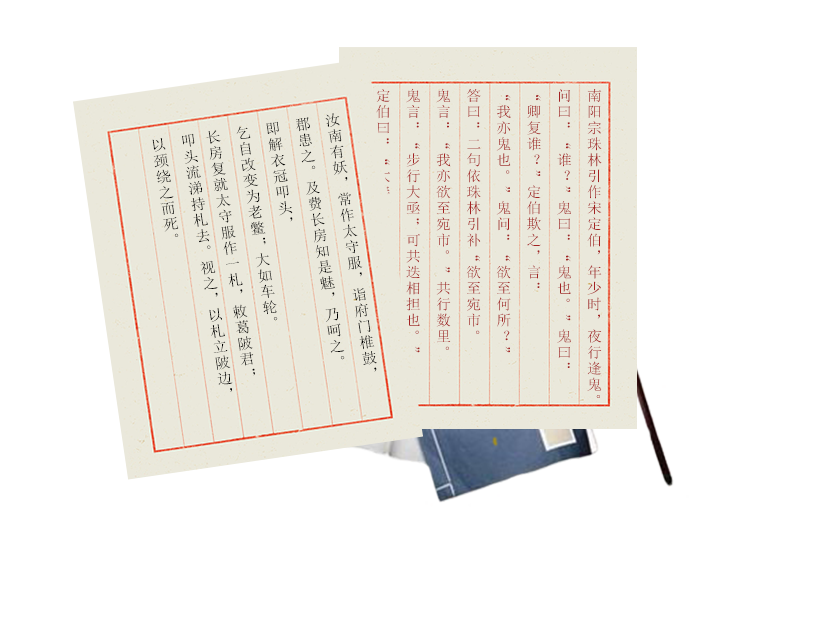 南阳宗珠林引作宋定伯，年少时，夜行逢鬼。
问曰：“谁？”鬼曰：“鬼也。”鬼曰：
“卿复谁？”定伯欺之，言：
“我亦鬼也。”鬼问：“欲至何所？”
答曰：二句依珠林引补“欲至宛市。
鬼言：“我亦欲至宛市。”共行数里。
鬼言：“步行大亟；可共迭相担也。”
定伯曰：“
汝南有妖，常作太守服，诣府门椎鼓，
郡患之。及费长房知是魅，乃呵之。
即解衣冠叩头，
乞自改变为老鳖；大如车轮。
长房复就太守服作一札，敕葛陂君；
叩头流涕持札去。视之，以札立陂边，
以颈绕之而死。